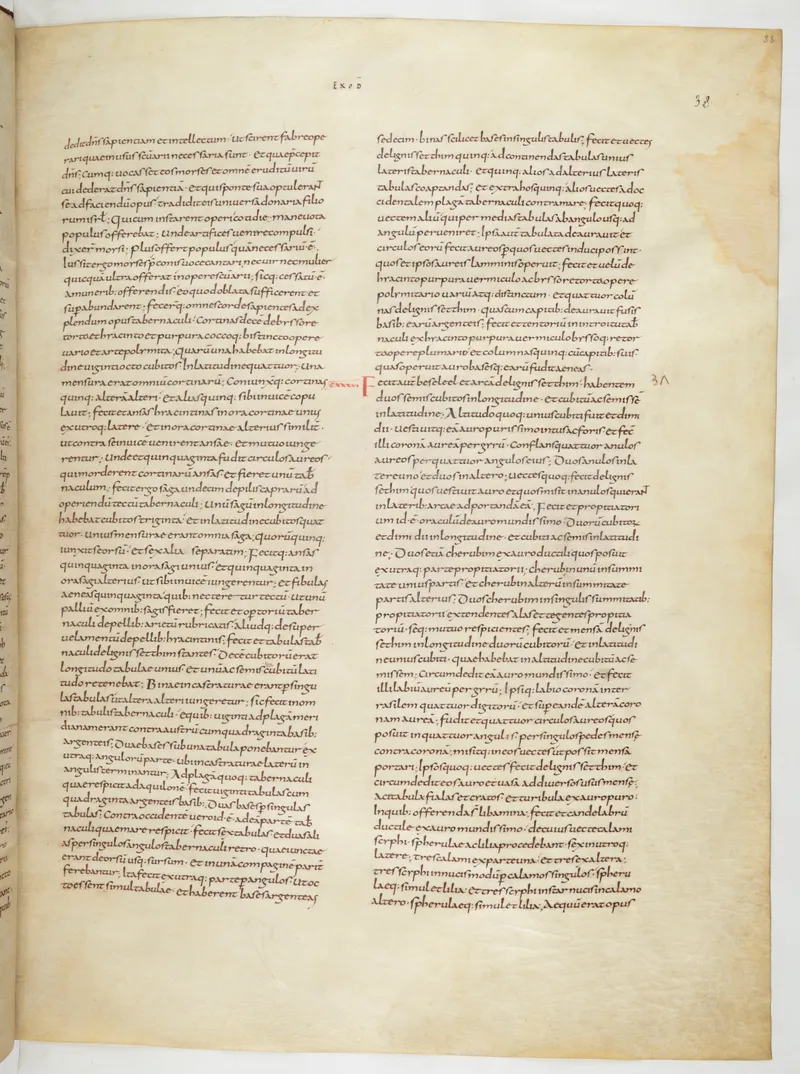 EXOD
38
dedit dn̄s sapientiam et intellectum · ut scirent fabre ope
rari quae in usus sc̄uarii necessaria sunt · et quae p̄cepit
dn̄s; Cumq: uocasset eos moyses et omnē eruditū uirū
cui dederat dn̄s sapientiā · et qui sponte sua optulerant
se ad faciendū opus tradidit eis uniuersa donaria filio
rum isrl̄; Qui cum instarent operi cotidie mane uota
populus offerebat; Unde artifices uenire compulsi
dixer̄ moysi; Plus offert populus quā necessariū ē;
Iussit ergo moyses p̄conis uoce cantari nec uir nec mulier
quicquā ultra offerat in opere sc̄uarii; sicq: cessatū ē
a munerib: offerendis eo quod oblata sufficerent et
supabundarent; fecer̄q: omnes corde sapientes ad ex
plendum opus tabernaculi · Cortinas decē de bysso re
torta et hyacinto et purpura coccoq: bis tincto opere
uario et arte polymita; Quarū una habebat in longitu
dine uiginti octo cubitos · In latitudine quattuor; Una
mensura erat omniū cortinarū; Coniunxitq: cortinas
quinq: alterā alteri · Et alias quinq: sibi inuicē copu
lauit; fecit et ansas hyacintinas in ora cortinae unius
ex utroq: latere · Et in ora cortinae alterius similit̄
ut contra se inuicē uenirent ansae · Et mutuo iunge
rentur; Unde et quinquaginta fudit circulos aureos
qui morderent cortinarū ansas et fieret unū tab̄
naculum; fecit ergo saga undecim de pilis caprarū ad
operiendū tectū tabernaculi; Unū sagū in longitudine
habebat cubitos triginta · Et in latitudine cubitos quat
tuor · Unius mensurae erant omnia saga; quorū quinq:
iunxit seorsū · Et sex alia separatim; Fecitq: ansas
quinquaginta in ora sagi unius · Et quinquaginta in
ora sagi alterius · ut sibi inuicē iungerentur; et fibulas
aeneas quinquaginta quib: necteretur tectū · ut unū
palliū ex omnib: sagis fieret; fecit et optoriū taber
naculi de pellib: arietū rubricatis · Aliudq: desuper
uelamentū de pellib: hyacintinis; fecit et tabulas tab̄
naculi de lignis setthim stantes; Decē cubitorū erat
longitudo tabulae unius · Et unū ac semis cubitū lati
tudo retenebat; Binae incastraturae erant p singu
las tabulas ut altera alteri iungeretur; sic fecit in om
nib: tabulis tabernaculi · equib: uiginti ad plagā meri
dianam erant contra austrū cum quadraginta basib:
argenteis; Duae bases sub una tabula ponebantur ex
utraq: angulorū parte · ubi incastraturae laterū in
angulis terminantur; Ad plagā quoq: tabernaculi
quae respicit ad aquilonē · fecit uiginti tabulas cum
quadraginta argenteis basib: Duas bases p singulas
tabulas; Contra occidentē uero id ē ad eā partē tab̄
naculi quae mare respicit · fecit sex tabulas et duas ali
as per singulos angulos tabernaculi retro · quae iunctae
erant deorsū usq: sursum · Et in unā compaginē parit̄
ferebantur; Ita fecit ex utraq: parte p angulos · Ut oc
to essent simul tabulae · et haberent bases argenteas
sedecim · binas scilicet bases in singulis tabulis; fecit et uectes
de lignis setthim quinq: ad continendas tabulas unius
lateris tabernaculi · Et quinq: alios ad alterius lateris
tabulas coaptandas; et extra hos quinq: alios uectes ad oc
cidentalem plagā tabernaculi contra mare; fecit quoq:
uectem aliū qui per medias tabulas ab angulo usq: ad
angulū perueniret; Ipsa aut̄ tabulata deaurauit et
circulos eorū fecit aureos p quos uectes induci possint ·
quos et ipsos aureis lamminis operuit; fecit et uelū de
hyacinto purpura uermiculo ac bysso retorta opere
polymitario uariū atq: distinctum · et quattuor colū
nas de lignis setthim · quas cum capitib: deaurauit fusis
basib: earū argenteis; fecit et tentoriū in introitu tab̄
naculi ex hyacinto purpura uermiculo byssoq: retor
ta opere plumarii et columnas quinq: cū capitib: suis
quas operuit auro basesq: earū fudit aeneas;
xxxvii Fecit aut̄ beseleel et arcā de lignis setthim · habentem 37
duos semis cubitos in longitudine · Et cubitū ac semissē
in latitudine; Altitudo quoq: unius cubiti fuit et dimi
dii · Vestiuitq: eā auro purissimo intus ac foris et fec̄
illi coronā aureā per gyrū; Conflans quattuor anulos
aureos per quattuor angulos eius; Duos anulos in la
tere uno et duos in altero; uectes quoq: fecit de lignis
setthim quos uestiuit auro et quos misit in anulos qui erant
in laterib: arcae ad portandā eā; Fecit et propitiatori
um id ē oraculū de auro mundissimo · Duorū cubitorū
et dimidii in longitudine · et cubiti ac semis in latitudi
ne; Duos etiā cherubim ex auro ductili quos posuit
ex utraq: parte propitiatorii; cherub unū in summi
tate unius partis · Et cherub alterū in summitate
partis alterius; Duos cherubim in singulis summitatib:
propitiatorii extendentes alas et tegentes propitia
toriū · seq: mutuo respicientes; fecit et mensā de lignis
setthim in longitudine duorū cubitorū · Et in latitudi
ne unius cubiti · quae habebat in altitudine cubitū ac se
missem; Circumdedit eā auro mundissimo · et fecit
illi labiū aureū per gyrū; Ipsiq: labio coronā inter
rasilem quattuor digitorū · et sup eandē alterā coro
nam aureā; fudit et quattuor circulos aureos quos
posuit in quattuor angulis p singulos pedes mensę
contra coronā; misitq: in eos uectes ut possit mensa
portari; Ipsos quoq: uectes fecit de lignis setthim · et
circumdedit eos auro et uasa ad diuersos usus mensę;
Acitabula fialas et cratos · et turibula ex auro puro ·
In quib: offerenda s̄ libamina; fecit et candelabrū
ductile ex auro mundissimo · de cuius uecte calami
scyphi · spherulae ac lilia procedebant · sex in utroq:
latere; tres calami ex parte una · et tres ex altera;
tres scyphi in nucis modū p calamos singulos · spheru
laeq: simul et lilia · Et tres scyphi instar nucis in calamo
altero · spherulaeq: simul et lilia; Aequū erat opus